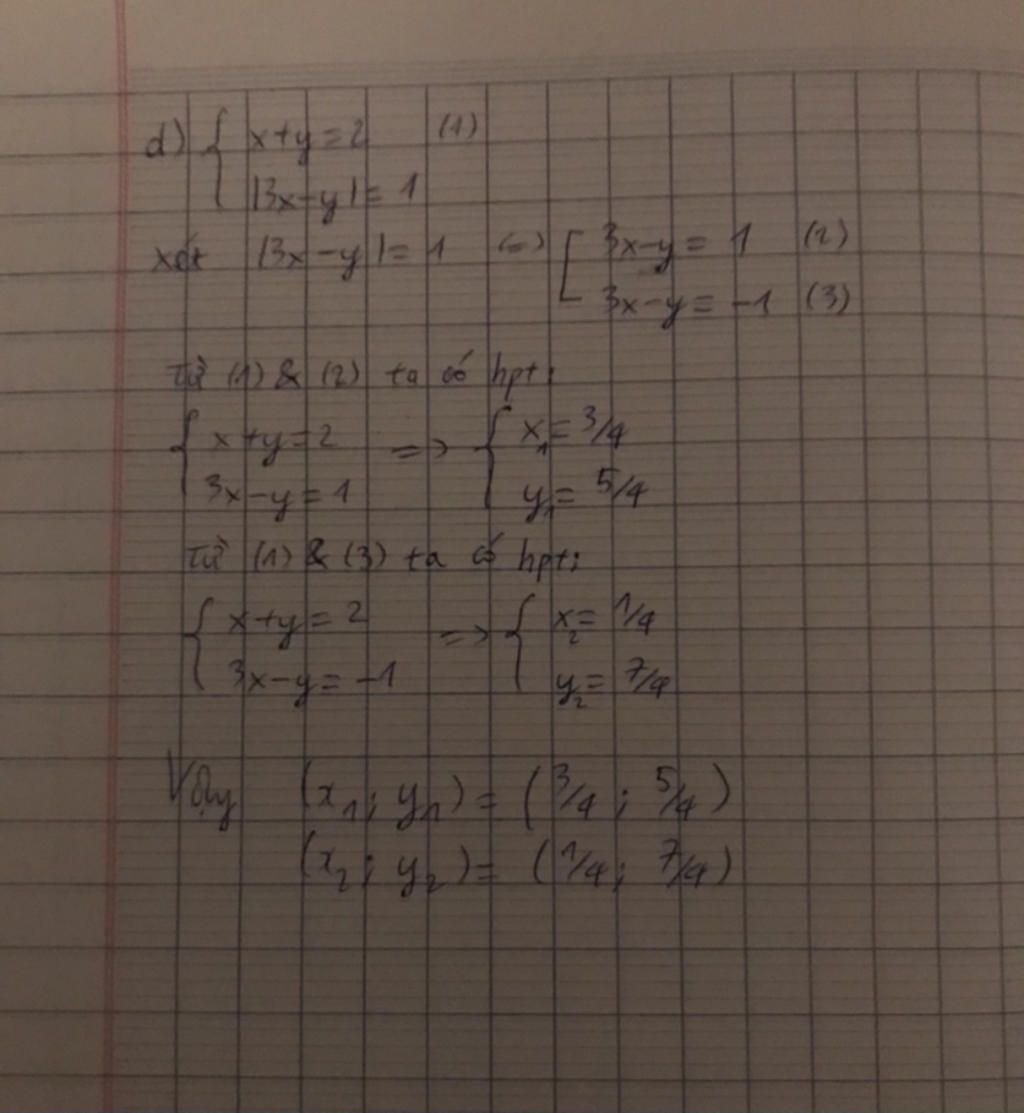 d) { x+y=2 (1)
|3x-y|=1
xét |3x-y|=1 (=) [ 3x-y=1 (2)
3x-y=-1 (3)
Từ (1) & (2) ta có hpt:
{ x+y=2 => { x₁=3/4
3x-y=1 y₁=5/4
Từ (1) & (3) ta có hpt:
{ x+y=2 => { x₂=1/4
3x-y=-1 y₂=7/4
Vậy (x₁; y₁) = (3/4; 5/4)
(x₂; y₂) = (1/4; 7/4)